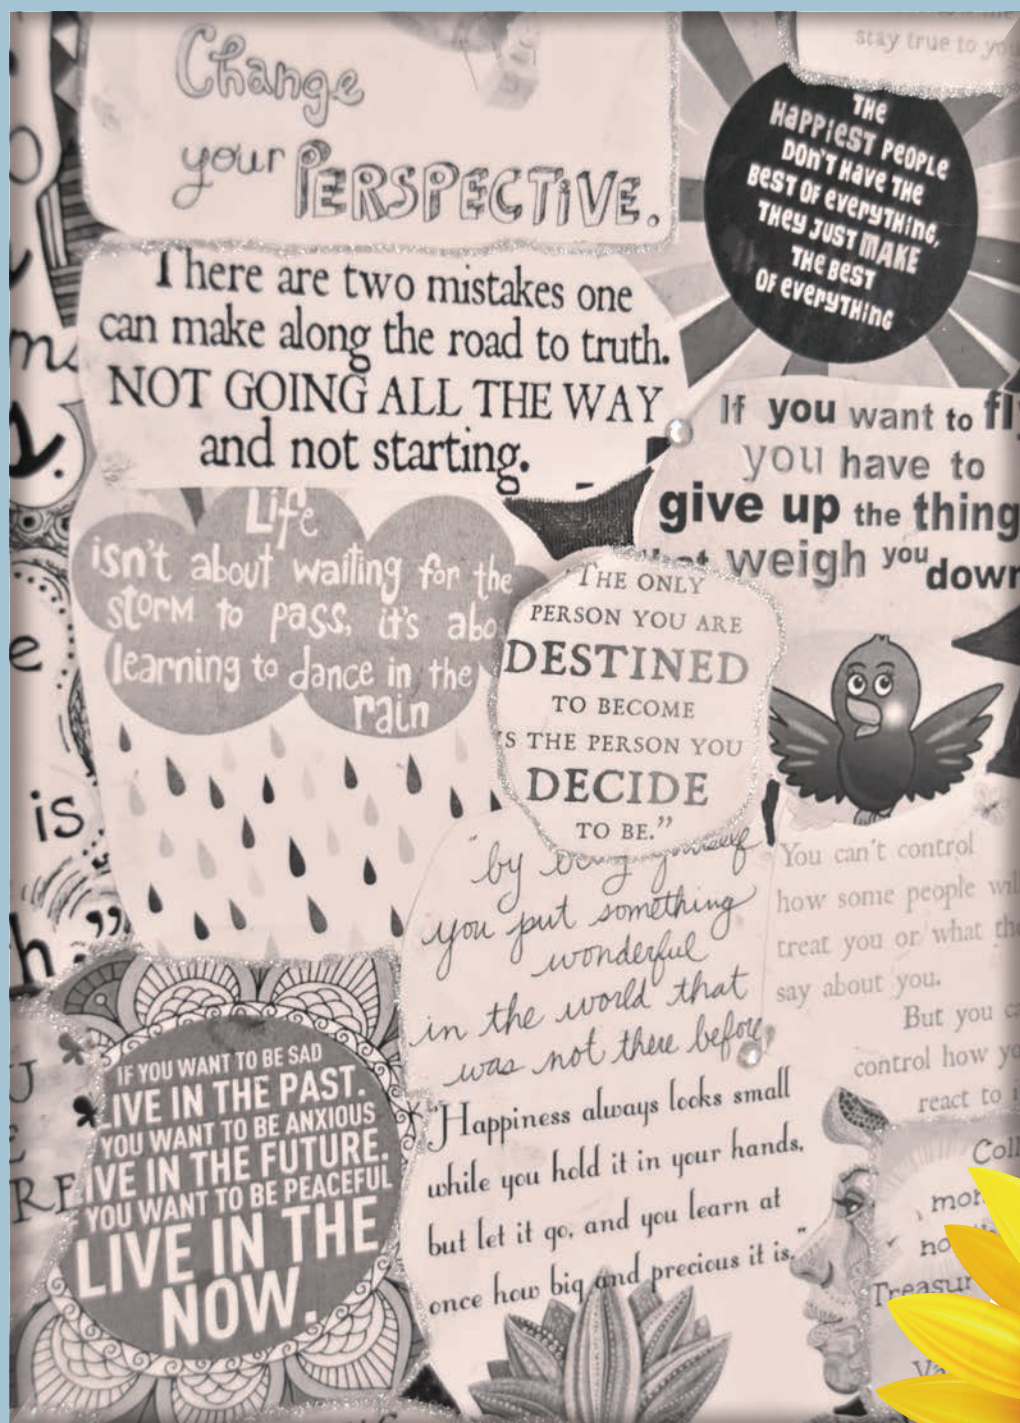 Change
your PERSPECTIVE.
stay true to
THE
HAPPIEST PEOPLE
DON'T HAVE THE
BEST OF EVERYTHING,
THEY JUST MAKE
THE BEST
OF EVERYTHING
There are two mistakes one
can make along the road to truth.
NOT GOING ALL THE WAY
and not starting.
If you want to fly
you have to
give up the thing
weigh you down
Life
isn't about waiting for the
storm to pass, it's abo
learning to dance in the
rain
"THE ONLY
PERSON YOU ARE
DESTINED
TO BECOME
IS THE PERSON YOU
DECIDE
TO BE."
"by being yourself
you put something
wonderful
in the world that
was not there before
You can't control
how some people will
treat you or what the
say about you.
But you ca
control how yo
react to i
is
IF YOU WANT TO BE SAD
LIVE IN THE PAST.
YOU WANT TO BE ANXIOUS
IVE IN THE FUTURE.
F YOU WANT TO BE PEACEFUL
LIVE IN THE
NOW.
"Happiness always looks small
while you hold it in your hands,
but let it go, and you learn at
once how big and precious it is."
Coll
mor
no
Treasur
Va